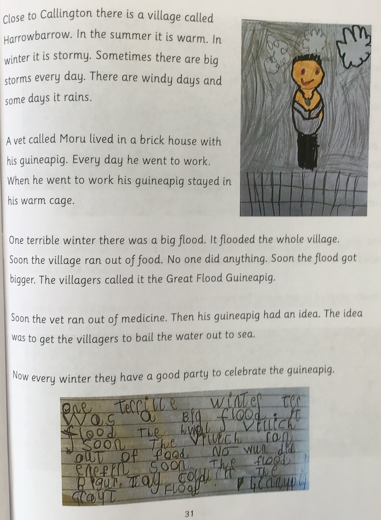 Close to Callington there is a village called
Harrowbarrow. In the summer it is warm. In
winter it is stormy. Sometimes there are big
storms every day. There are windy days and
some days it rains.
A vet called Moru lived in a brick house with
his guineapig. Every day he went to work.
When he went to work his guineapig stayed in
his warm cage.
One terrible winter there was a big flood. It flooded the whole village.
Soon the village ran out of food. No one did anything. Soon the flood got
bigger. The villagers called it the Great Flood Guineapig.
Soon the vet ran out of medicine. Then his guineapig had an idea. The idea
was to get the villagers to bail the water out to sea.
Now every winter they have a good party to celebrate the guineapig.
one terrible winter
Was a Big flood. It
flood The
Soon The ran
out of food No wun did
Soon The flood
The
flood
31